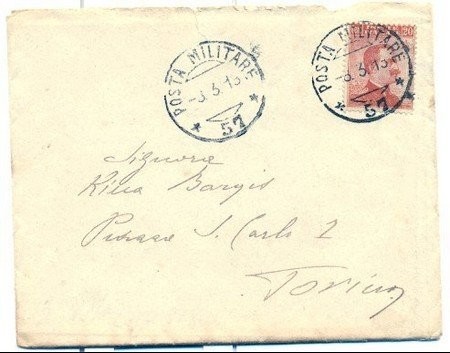 POSTA MILITARE
-3.5.18
* 57 *
POSTA MILITARE
-3.5.18
* 57 *
60
Signora
Bargis
S. Carlo 2
Torino